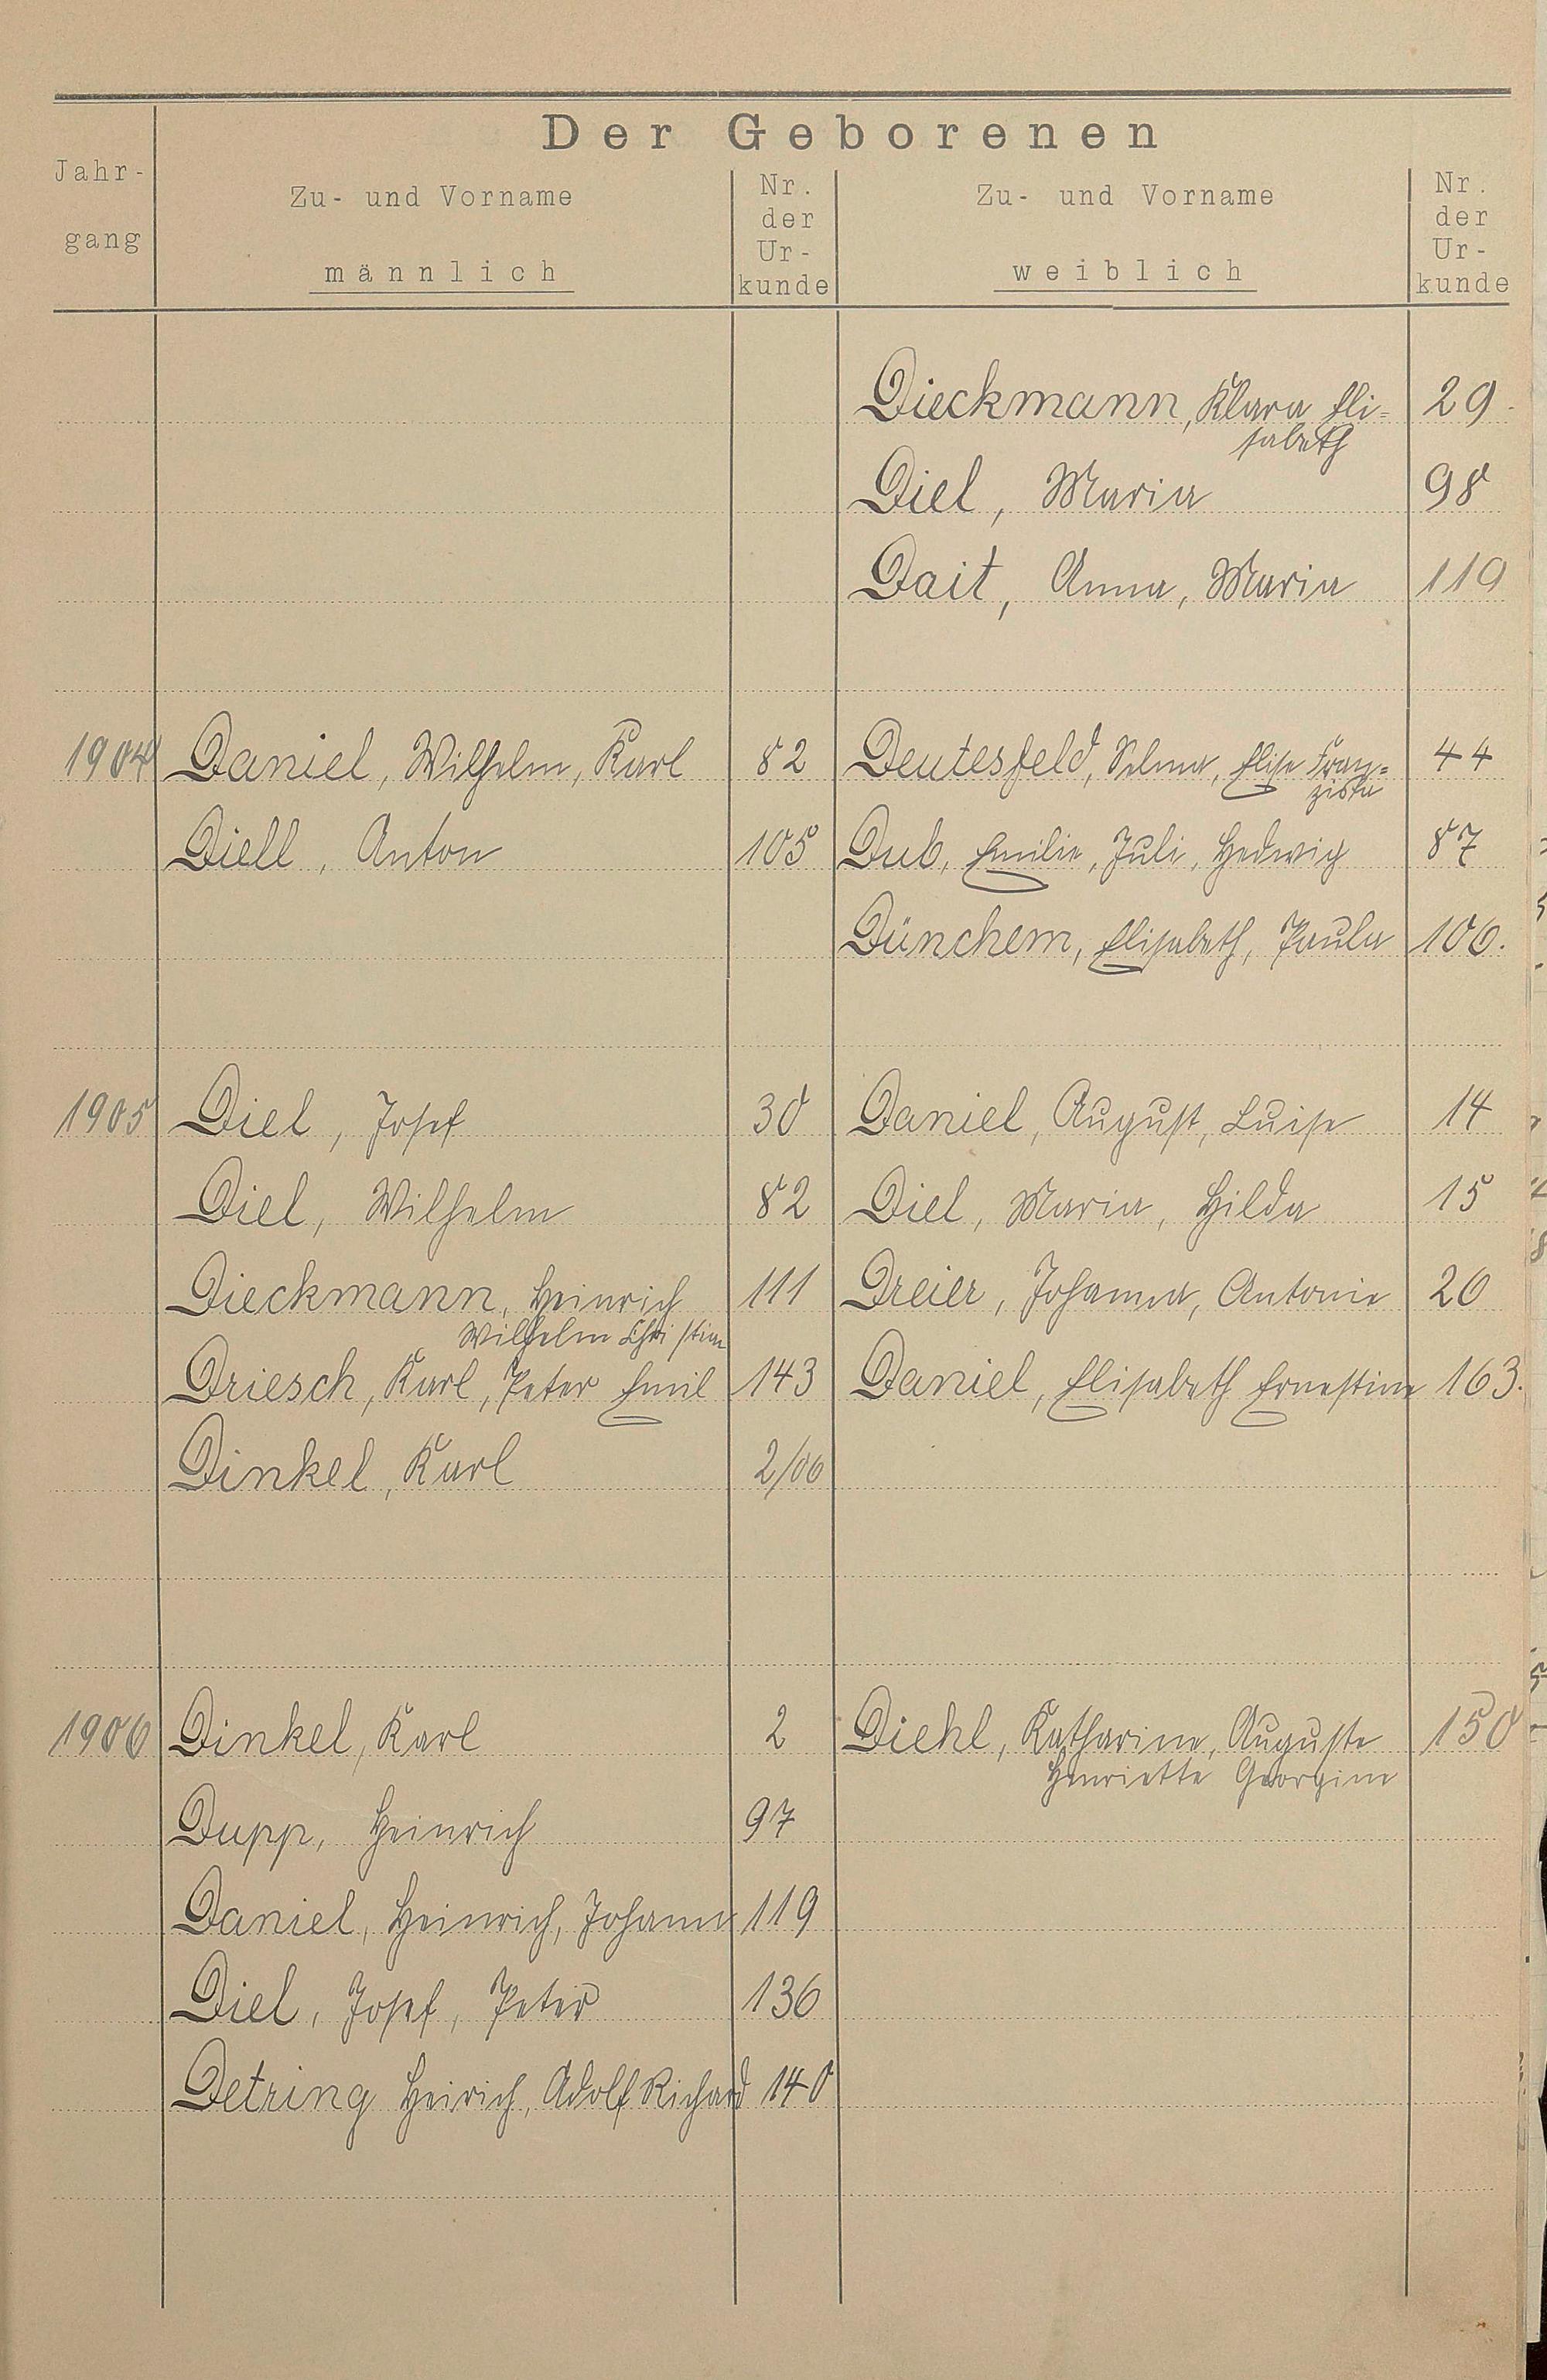 Der Geborenen
Jahr-
gang
Zu- und Vorname
männlich
Nr.
der
Ur-
kunde
Zu- und Vorname
weiblich
Nr.
der
Ur-
kunde
Dieckmann, Klara Eli= 29
sabeth
Diel, Maria 98
Dait, Anna, Maria 119
1904 Daniel, Wilhelm, Karl 82 Deutesfeld, Selma, Elise Fran= 44
ziska
Diell, Anton 105 Dub, Emilie, Juli, Hedwig 87
Dünchem, Elisabeth, Paula 106.
1905 Diel, Josef 30 Daniel, August, Luise 14
Diel, Wilhelm 82 Diel, Maria, Hilda 15
Dieckmann, Heinrich 111 Dreier, Johanna, Antonie 26
Wilhelm Christian
Driesch, Karl, Peter Emil 143 Daniel, Elisabeth Ernestine 163.
Dinkel, Karl 2/06
1906 Dinkel, Karl 2 Diehl, Katharine, Auguste 150
Henriette Georgine
Dupp, Heinrich 97
Daniel, Heinrich, Johann 119
Diel, Josef, Peter 136
Detring Heirich, Adolf Richard 140